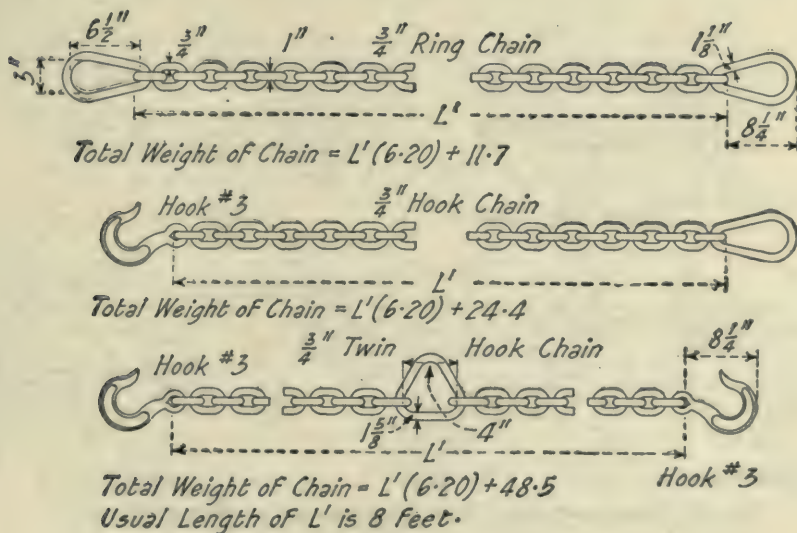 6 1/2" 3/4" 1" 3/4" Ring Chain 1 1/8"
3"
L' 8 1/4"
Total Weight of Chain = L'(6·20) + 11·7
Hook #3 3/4" Hook Chain
L'
Total Weight of Chain = L'(6·20) + 24·4
Hook #3 3/4" Twin Hook Chain 8 1/4"
1 5/8" 4"
L' Hook #3
Total Weight of Chain = L'(6·20) + 48·5
Usual Length of L' is 8 Feet.